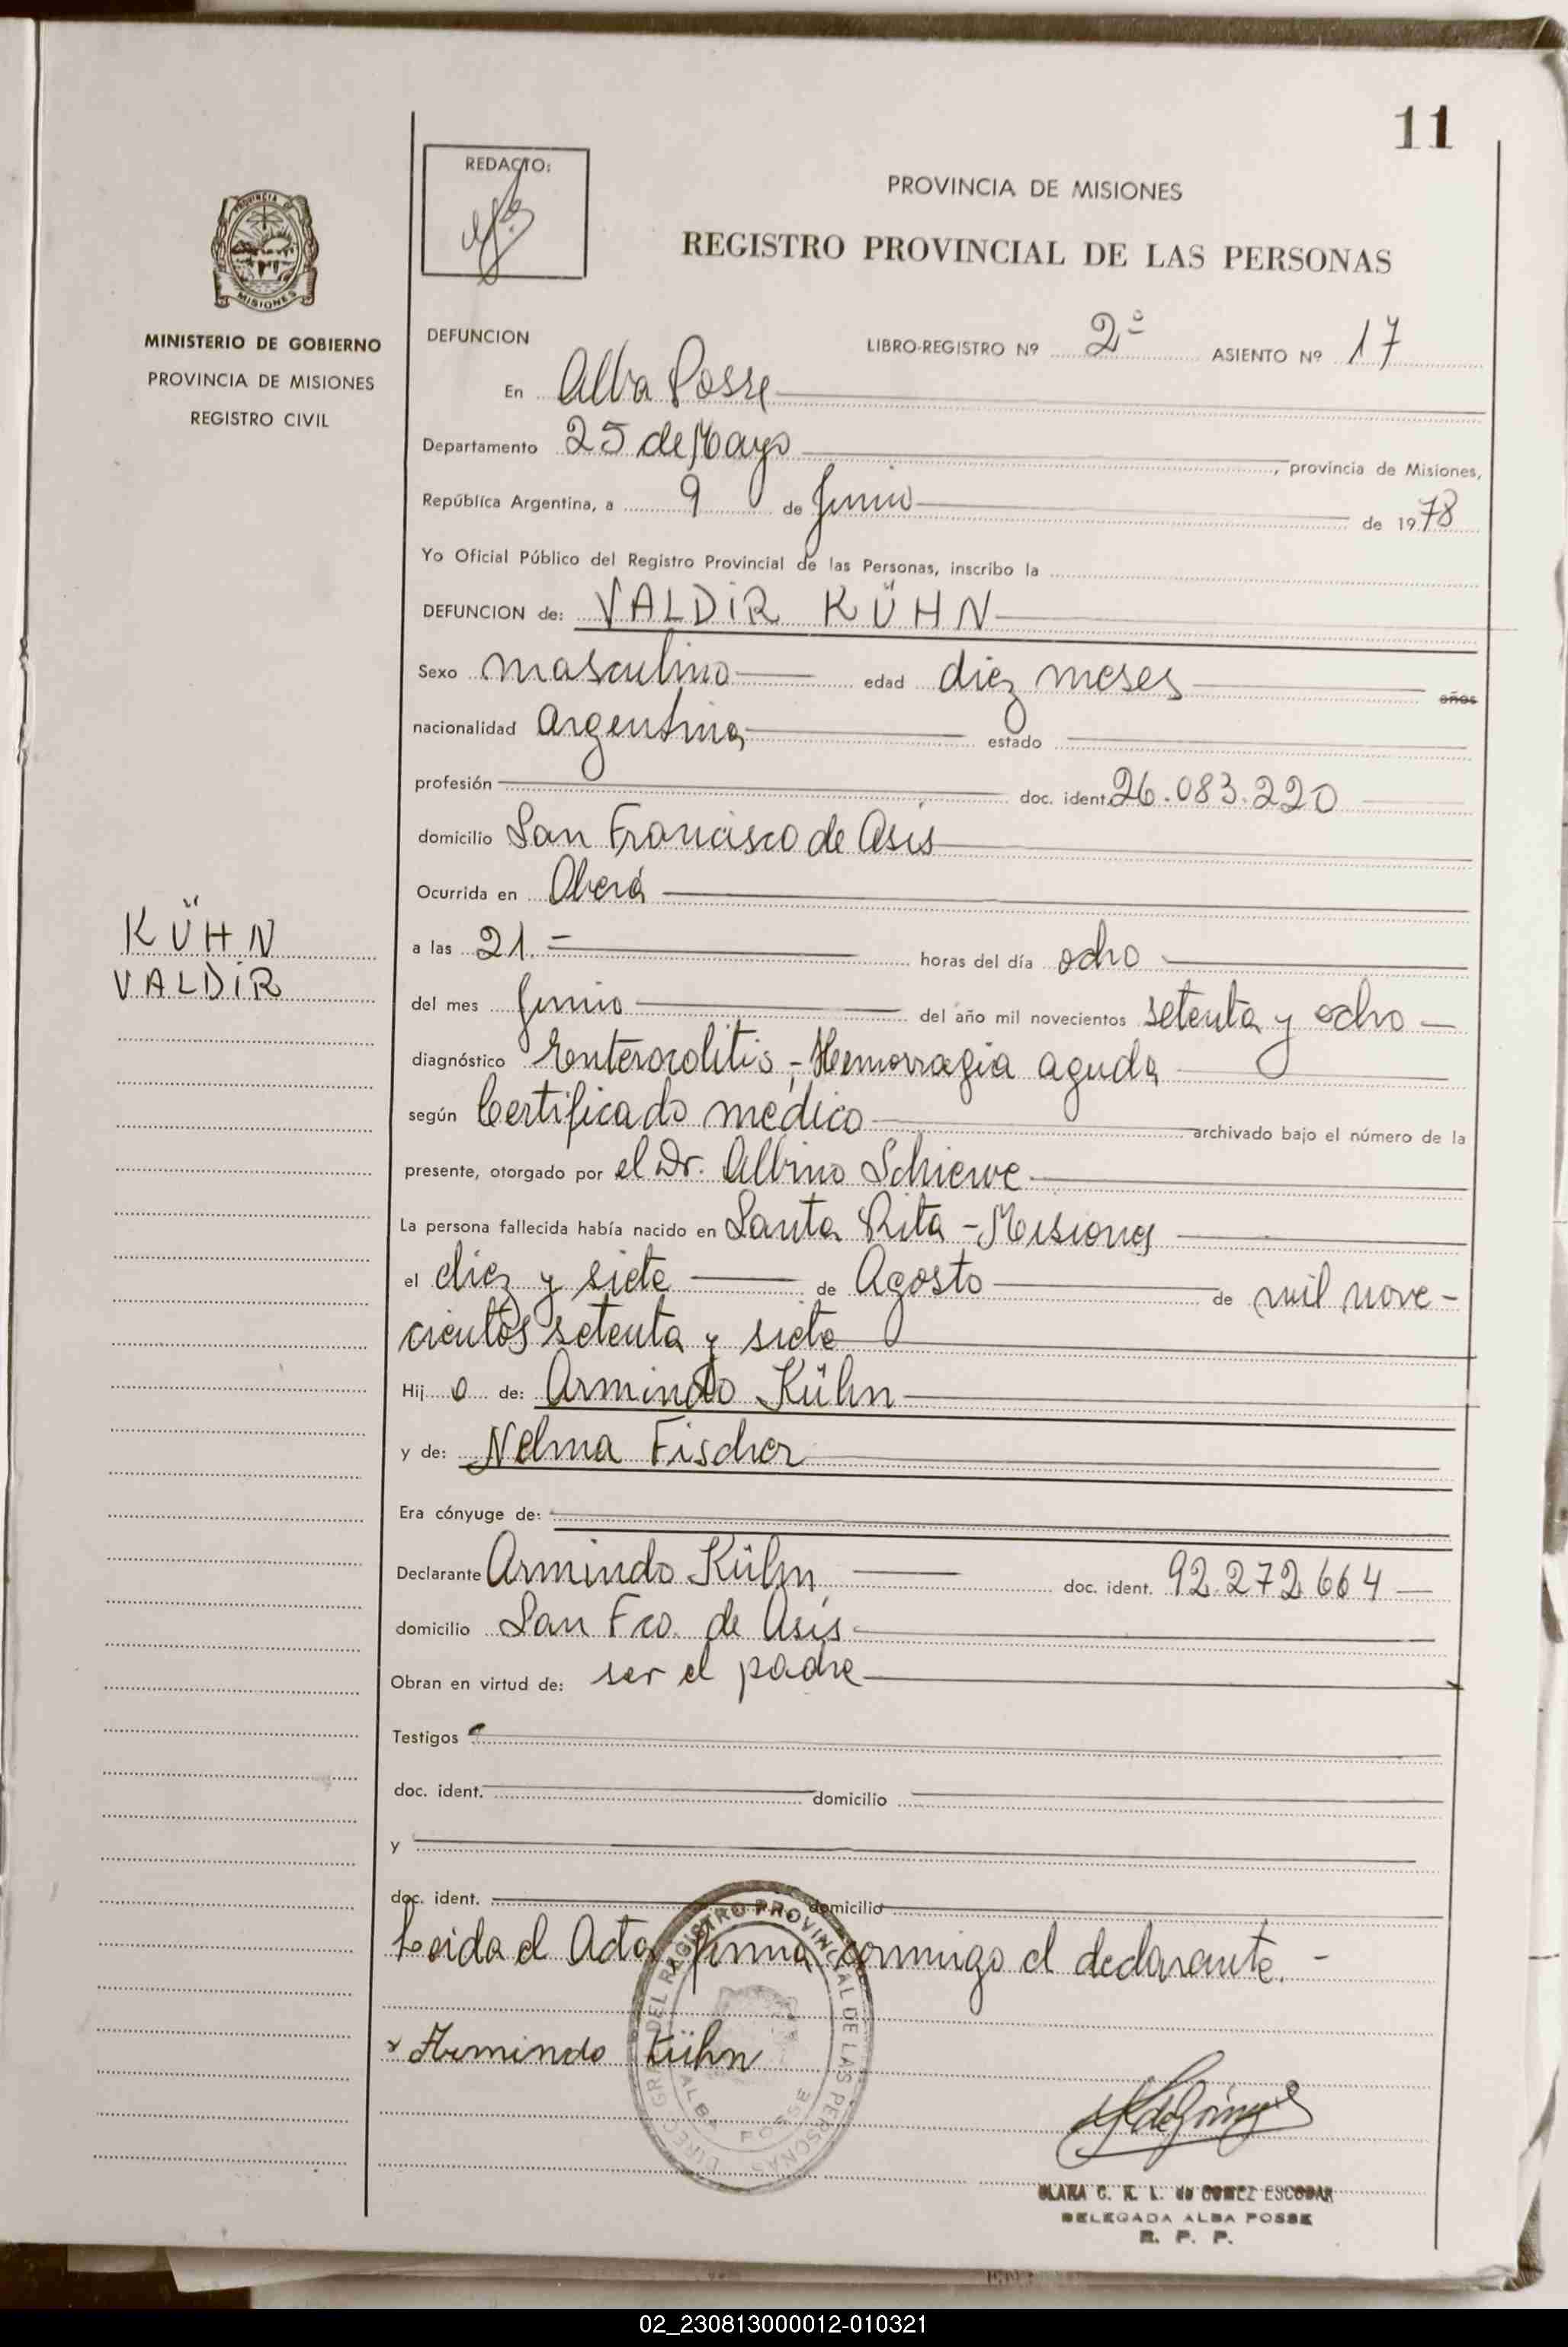 11
REDACTO:
PROVINCIA DE MISIONES
REGISTRO PROVINCIAL DE LAS PERSONAS
PROVINCIA
MISIONES
MINISTERIO DE GOBIERNO
PROVINCIA DE MISIONES
REGISTRO CIVIL
DEFUNCION
LIBRO-REGISTRO Nº 2º ASIENTO Nº 17
En Alba Posse
Departamento 25 de Mayo, provincia de Misiones,
República Argentina, a 9 de Junio de 1978
Yo Oficial Público del Registro Provincial de las Personas, inscribo la
DEFUNCION de: VALDIR KÜHN
Sexo masculino edad diez meses años
nacionalidad argentina estado
profesión doc. ident. 26.083.220
domicilio San Francisco de Asis
Ocurrida en Oberá
KÜHN
VALDIR
a las 21.= horas del día ocho
del mes Junio del año mil novecientos setenta y ocho
diagnóstico Enterocolitis - Hemorragia aguda
según Certificado médico archivado bajo el número de la
presente, otorgado por el Dr. Albino Schiewe
La persona fallecida había nacido en Santa Rita - Misiones
el diez y siete de Agosto de mil nove-
cientos setenta y siete
Hij o de: Armindo Kühn
y de: Nelma Fischer
Era cónyuge de:
Declarante Armindo Kühn doc. ident. 92.272.664
domicilio San Fco. de Asís
Obran en virtud de: ser el padre
Testigos
doc. ident. domicilio
y
doc. ident. domicilio
Leida el Acta, firma conmigo el declarante. -
DIREC. GRAL. DEL REGISTRO PROVINCIAL DE LAS PERSONAS
ALBA POSSE
x Armindo Kühn
CLARA C. K. L. de GOMEZ ESCOBAR
DELEGADA ALBA POSSE
R. P. P.
02_230813000012-010321